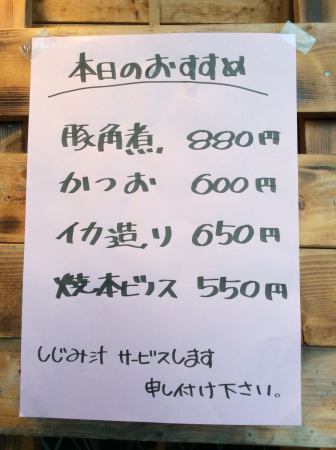 本日のおすすめ
豚角煮 880円
かつお 600円
イカ造り 650円
焼本ビノス 550円
しじみ汁 サービスします
申し付け下さい。